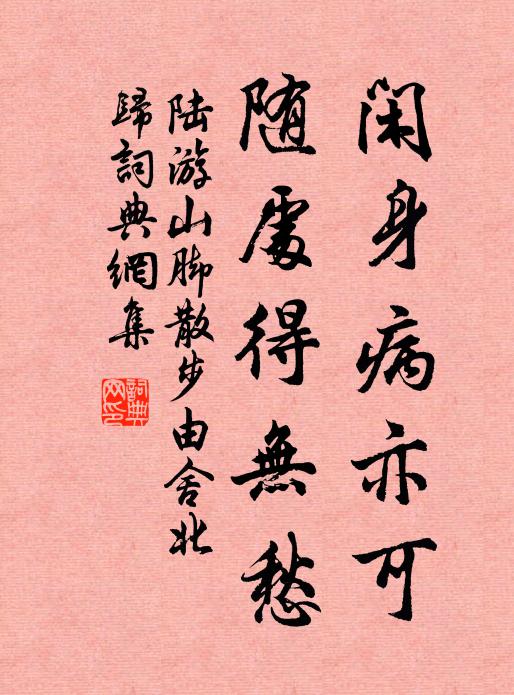 閑身病亦可
随處得無愁
陆游山脚散步由舍北
歸詞典網集
詞典
网印